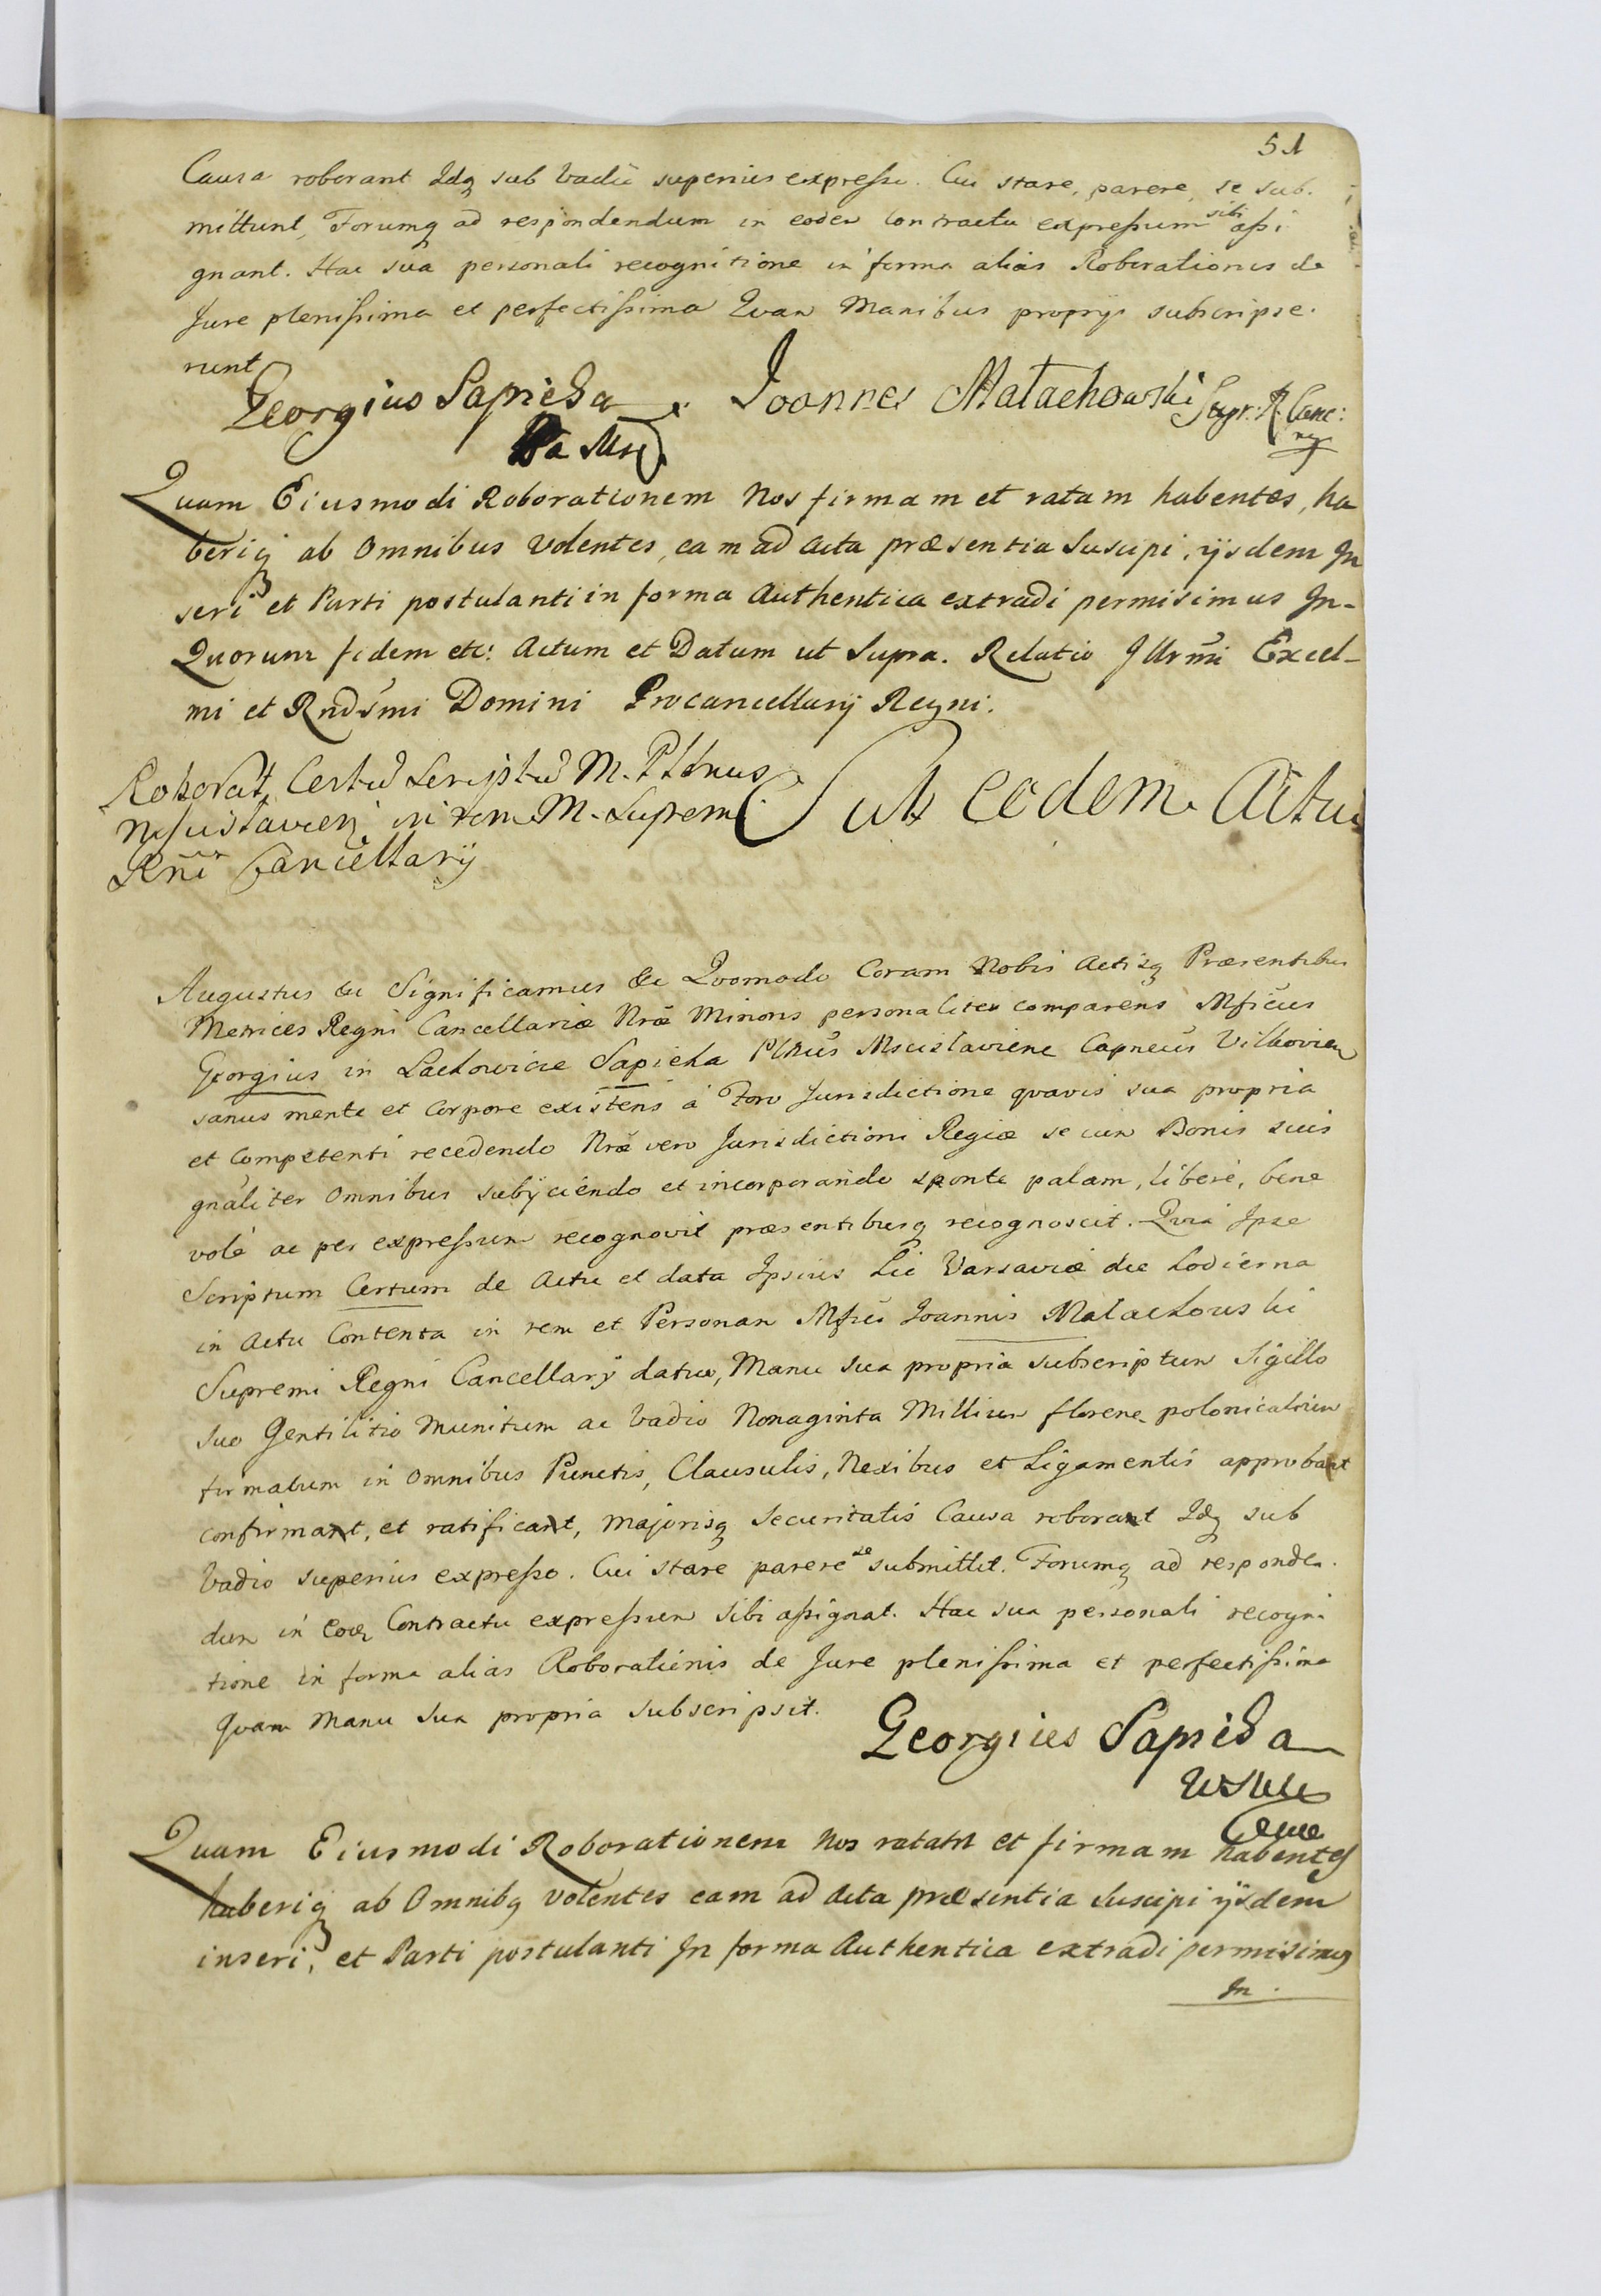 51
Causa roborant Idq sub Vadii superius expressi. Cui stare, parere, se sub.
mittunt, Forumq ad respondendum in eodem Contractu expressum sibi assi
gnant. Hac sua personali recognitione in forma alias Roborationis de
Jure plenissima et perfectissima Quam Manibus proprys subscripse.
runt
Georgius Sapieha Joannes Małachowski Supr: R. Canc:
Quam Eiusmodi Roborationem Nos firmam et ratam habentes, ha
beriq ab Omnibus volentes, eam ad Acta præsentia Suscipi, ijsdem In
seri et Parti postulanti in forma Authentica extradi permisimus In-
Quorum fidem etc: Actum et Datum ut Supra. Relatio Illrmi Excel-
mi et Rndsmi Domini Procancellarij Regni.
Roborat Certu Scriptu M. Pltnus
Mscislavien in rem M. Suprem
Rni Cancellarij
Sub eodem Actu
Augustus &c Significamus &c Quomodo Coram Nobis Actisq Præsentibus
Metrices Regni Cancellariæ Nræ Minoris personaliter comparens Mficus
Georgius in Lachowicze Sapieha Pltnus Mscislaviens Capneus Vilkovien
sanus mente et Corpore existens a Foro Jurisdictione quavis sua propria
et Competenti recedendo Nræ vero Jurisdictioni Regiæ se cum Bonis suis
gnaliter Omnibus subijciendo et incorporando sponte palam, libere, bene
vole ac per expressum recognovit præsentibusq recognoscit. Quia Ipse
Scriptum Certum de Actu et data Ipsius hic Varsaviæ die hodierna
in Actu Contenta in rem et Personam Mfici Joannis Małachowski
Supremi Regni Cancellarij datum, Manu sua propria subscriptum Sigillo
suo Gentilitio Munitum ac Vadio Nonaginta Millium floren polonicalium
firmatum in Omnibus Punctis, Clausulis, Nexibus et Ligamentis approbant
confirmat, et ratificat, majorisq Securitatis Causa roborat Idq sub
Vadio superius expresso. Cui stare parere se submittit. Forumq ad responden.
dum in eoq Contractu expressum sibi assignat. Hac sua personali recogni
tione in forma alias Roborationis de Jure plenissima et perfectissima
Quam Manu sua propria subscripsit.
Georgius Sapieha
Quam Eiusmodi Roborationem Nos ratam et firmam habentes
haberiq ab Omnibq volentes eam ad Acta præsentia Suscipi ijsdem
inseri, et Parti postulanti In forma Authentica extradi permisimus
In.